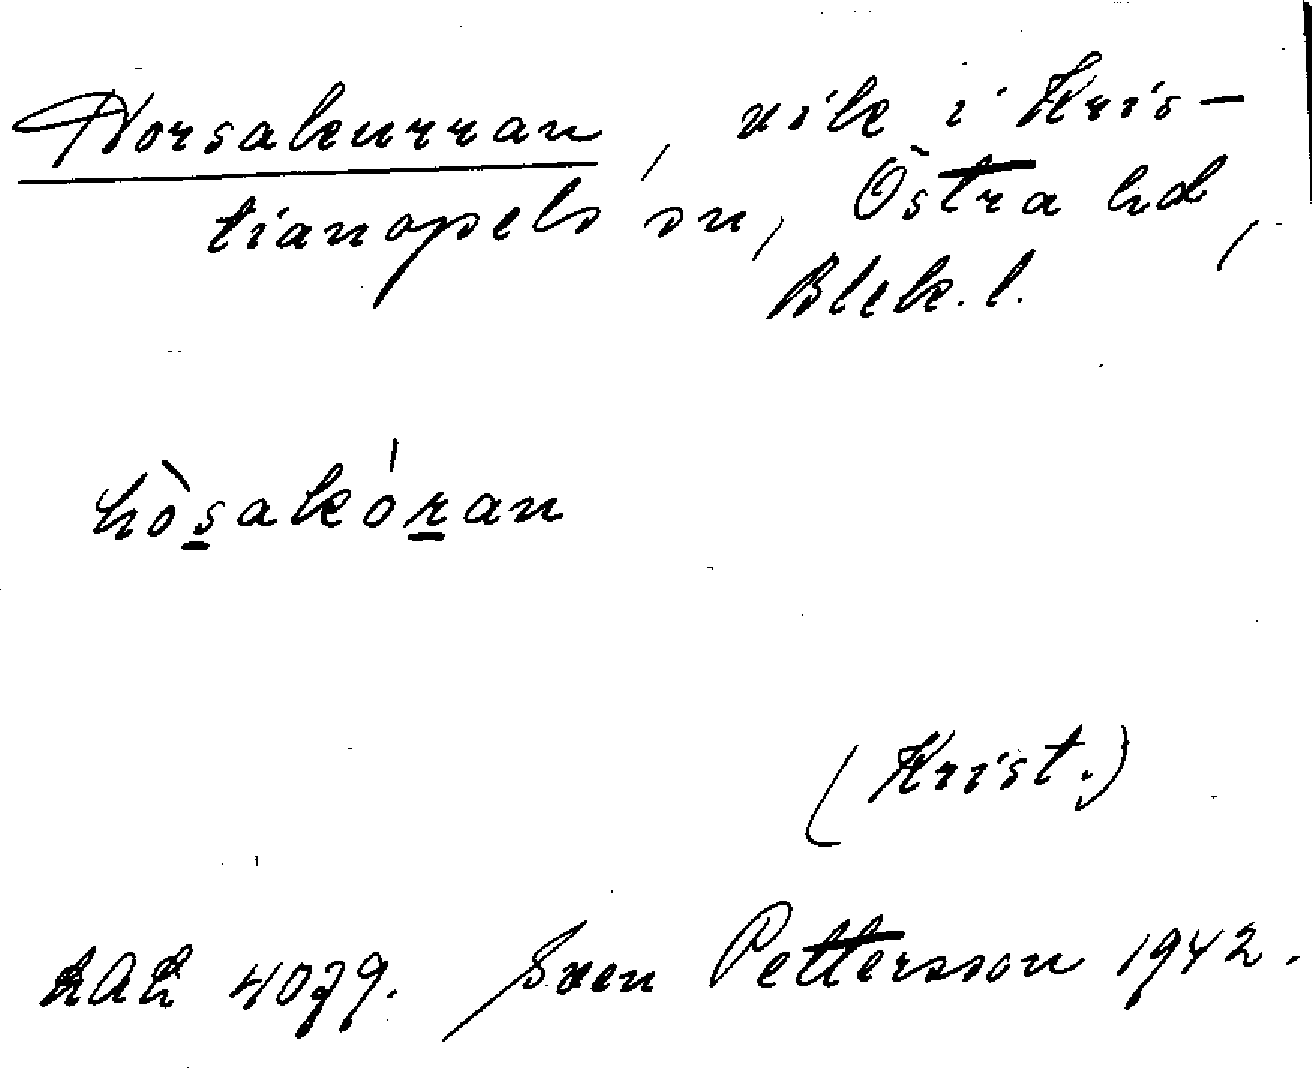 Horsakurran, vik i Kris-
tianopels sn, Östra hd,
Blek. l.
hòs̲akór̲an
(Krist.)
LAL 4079. Sven Pettersson 1942.